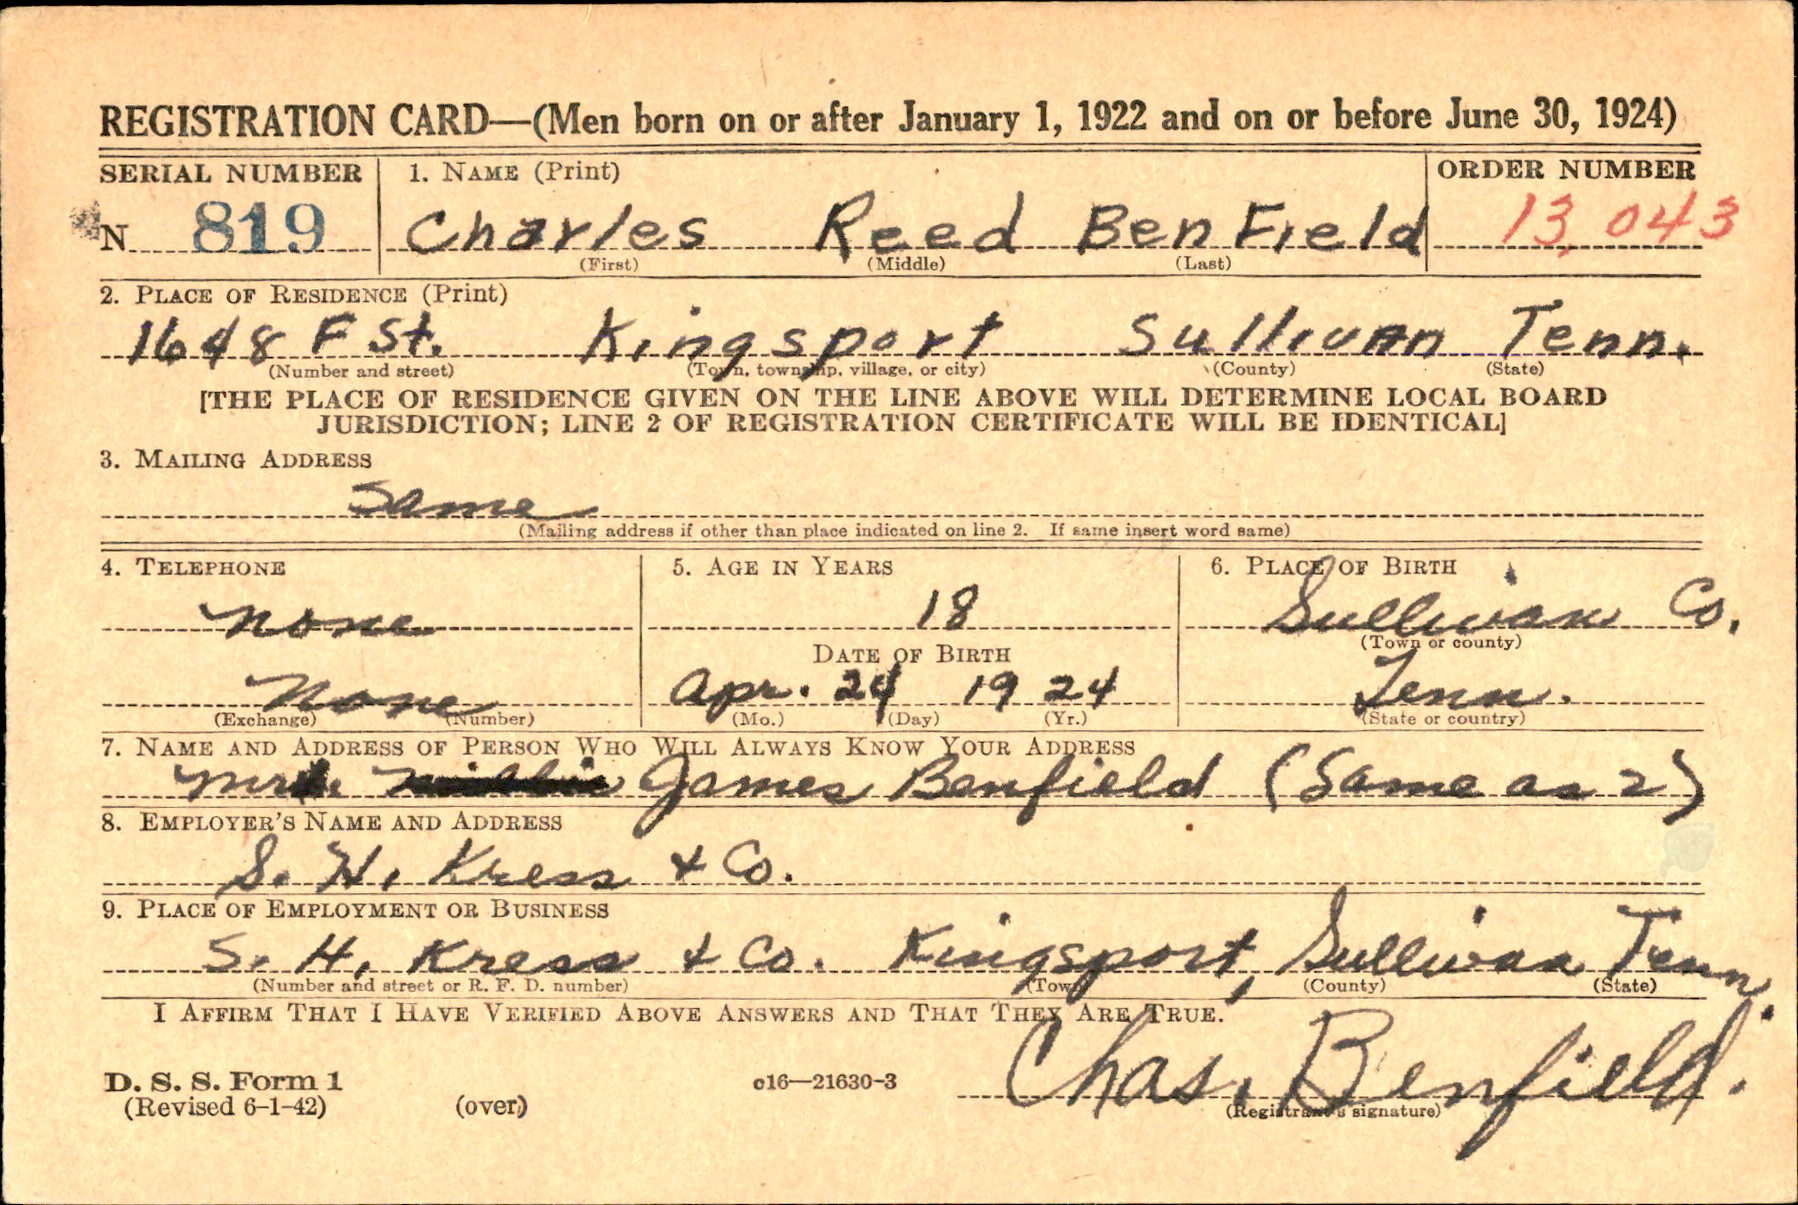 REGISTRATION CARD—(Men born on or after January 1, 1922 and on or before June 30, 1924)
SERIAL NUMBER 1. NAME (Print) ORDER NUMBER
N 819 Charles Reed BenField 13,043
(First) (Middle) (Last)
2. PLACE OF RESIDENCE (Print)
1648 F St. Kingsport Sullivan Tenn.
(Number and street) (Town, township, village, or city) (County) (State)
[THE PLACE OF RESIDENCE GIVEN ON THE LINE ABOVE WILL DETERMINE LOCAL BOARD
JURISDICTION; LINE 2 OF REGISTRATION CERTIFICATE WILL BE IDENTICAL]
3. MAILING ADDRESS
Same
(Mailing address if other than place indicated on line 2. If same insert word same)
4. TELEPHONE 5. AGE IN YEARS 6. PLACE OF BIRTH
None 18 Sullivan Co.
(Town or county)
DATE OF BIRTH
None Apr. 24 1924 Tenn.
(Exchange) (Number) (Mo.) (Day) (Yr.) (State or country)
7. NAME AND ADDRESS OF PERSON WHO WILL ALWAYS KNOW YOUR ADDRESS
Mr. James Benfield (Same as 2)
8. EMPLOYER'S NAME AND ADDRESS
S. H. Kress & Co.
9. PLACE OF EMPLOYMENT OR BUSINESS
S. H. Kress & Co. Kingsport, Sullivan Tenn.
(Number and street or R. F. D. number) (Town) (County) (State)
I AFFIRM THAT I HAVE VERIFIED ABOVE ANSWERS AND THAT THEY ARE TRUE.
Chas. Benfield.
D. S. S. Form 1 c16—21630-3
(Revised 6-1-42) (over) (Registrant's signature)